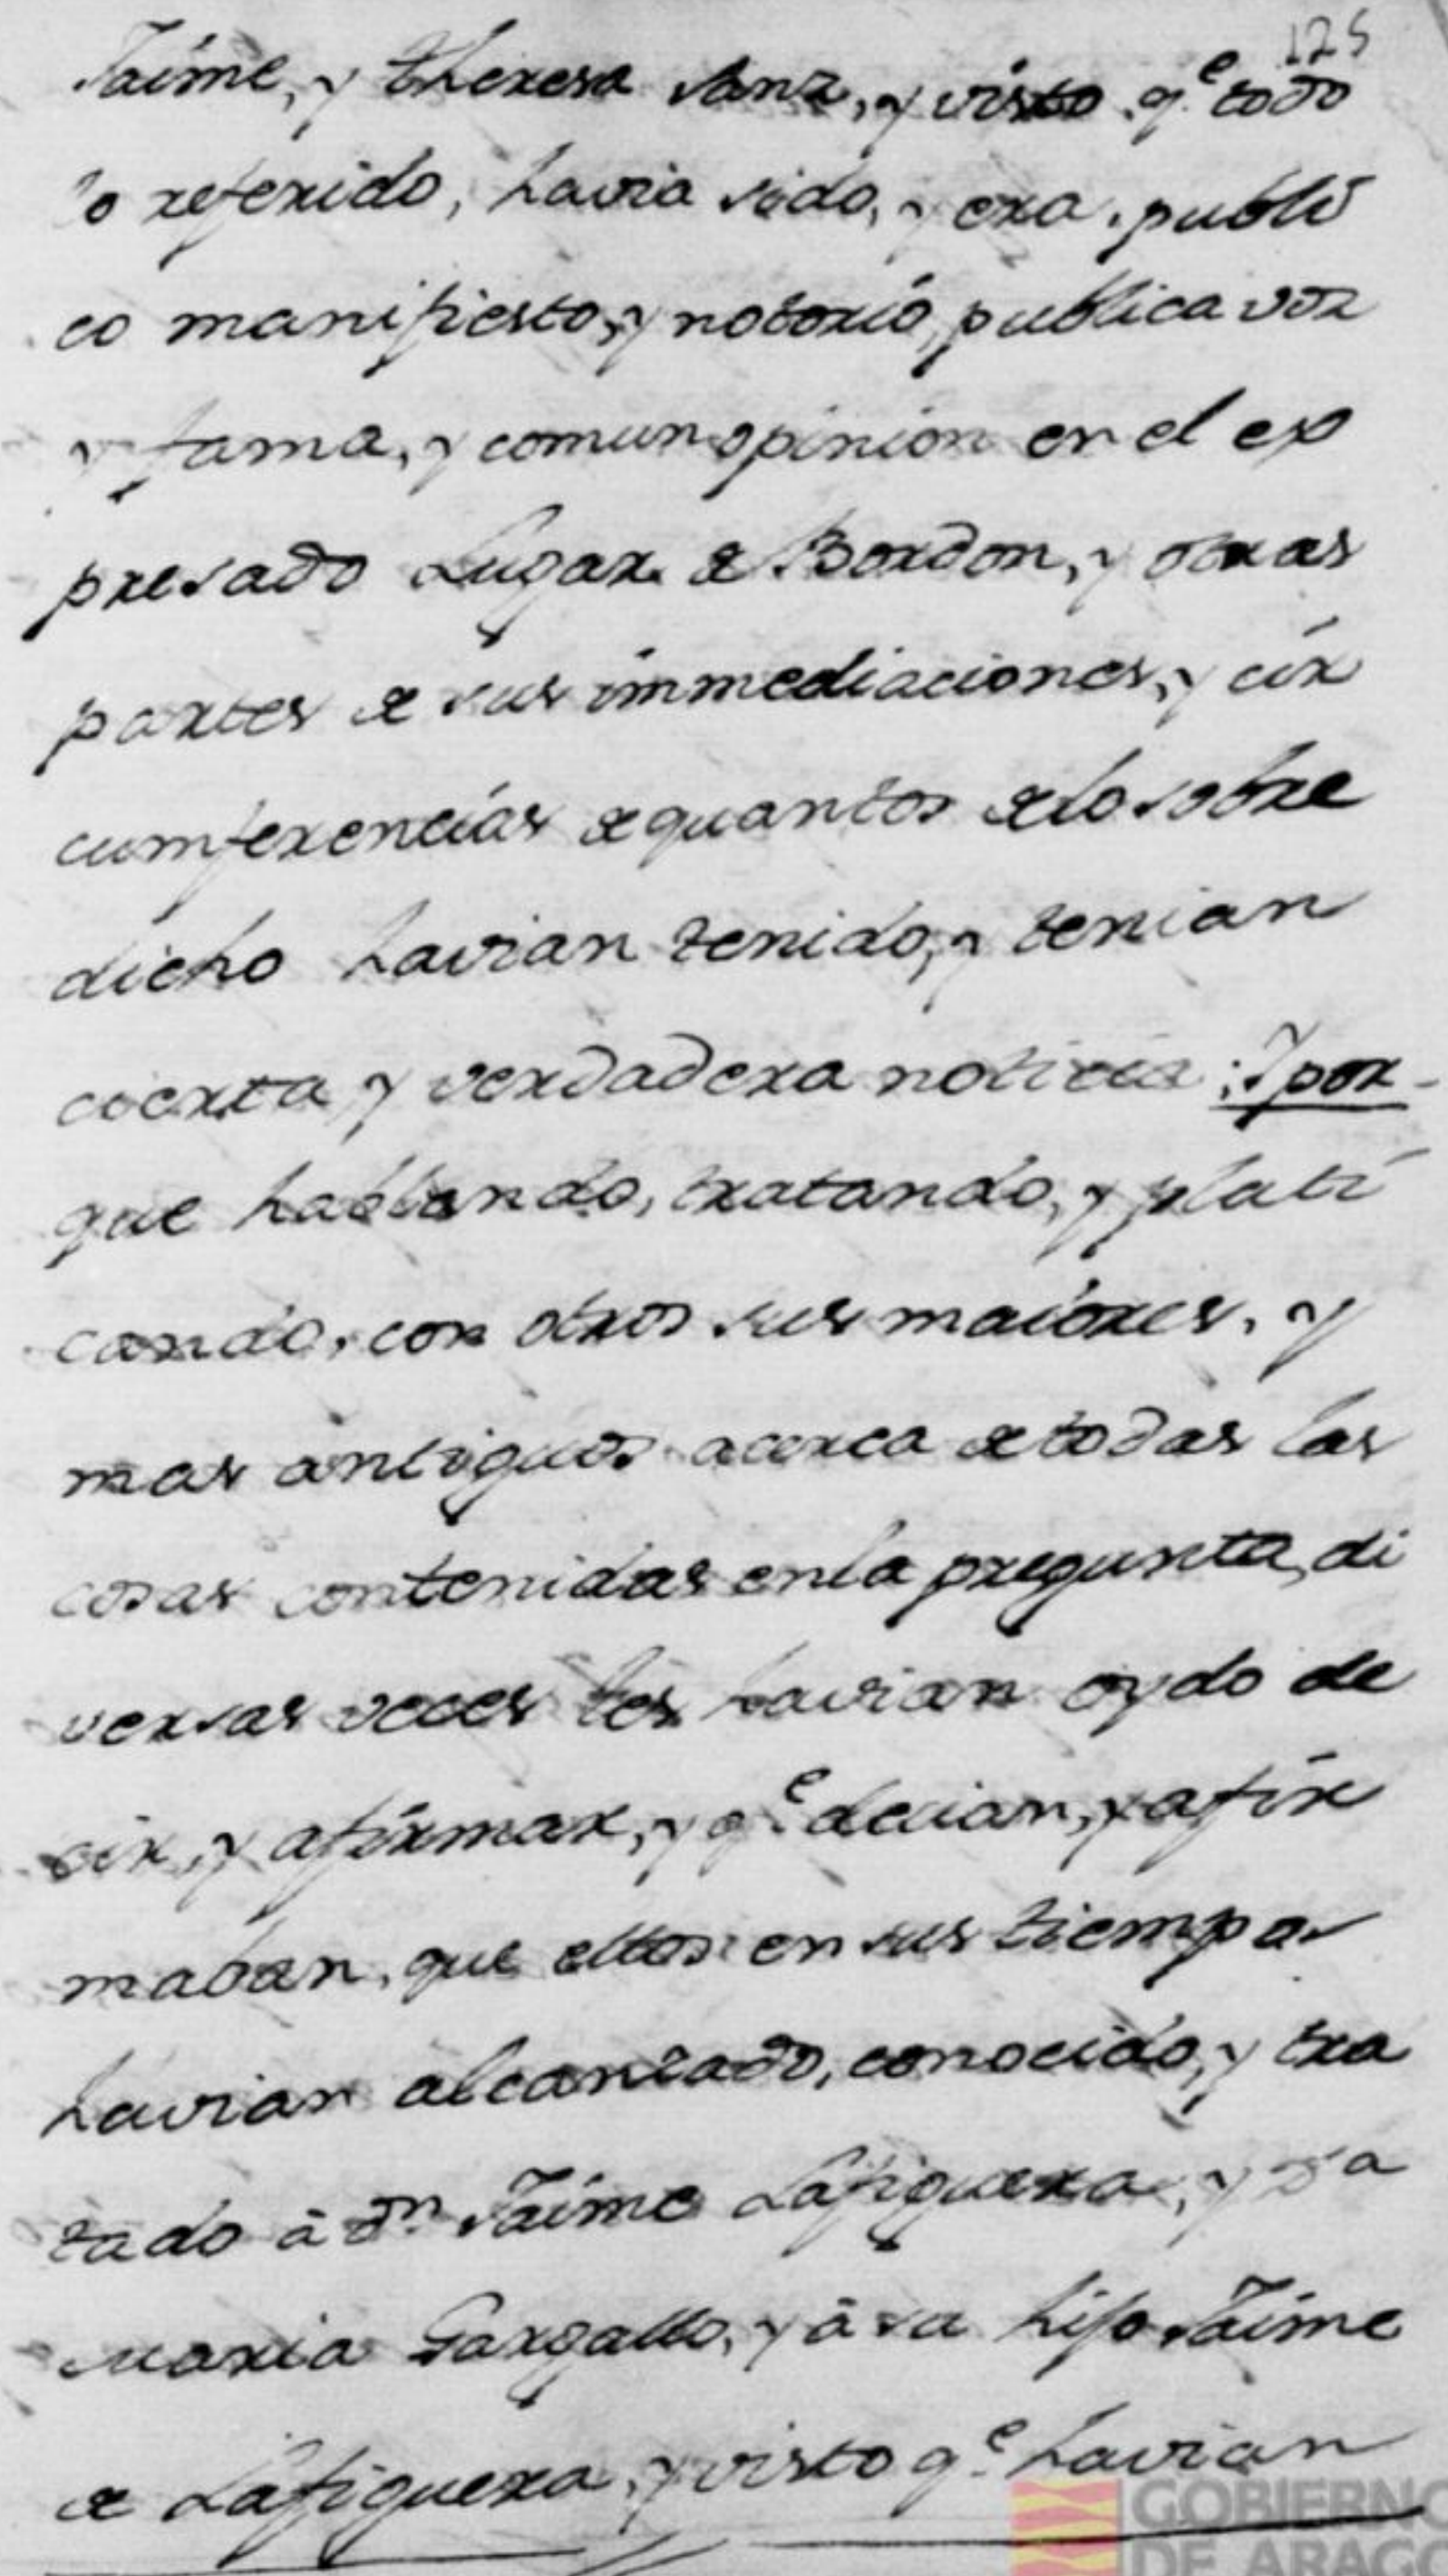 125
Jaime, y Theresa Sanz, y visto qe. todo
lo referido, havia sido, y era publi
co manifiesto, y notorio, publica voz
y fama, y comun opinion en el ex
presado Lugar de Bordon, y otras
partes de sus immediaciones, y cir
cumferencias de quantos de lo sobre
dicho havian tenido, y tenian
cierta y verdadera noticia: Y por-
que hablando, tratando, y plati
cando, con otros sus maiores, y
mas antiguos acerca de todas las
cosas contenidas en la pregunta, di
versas veces les havian oydo de
cir, y afirmar, y qe. decian, y afir
maban, que ellos en sus tiempos
havian alcanzado, conocido, y tra
tado à Dn. Jaime Lafiguera, y Da
Maria Gargallo, y à su hijo Jaime
de Lafiguera, y visto qe. havian
GOBIERNO
DE ARAGO